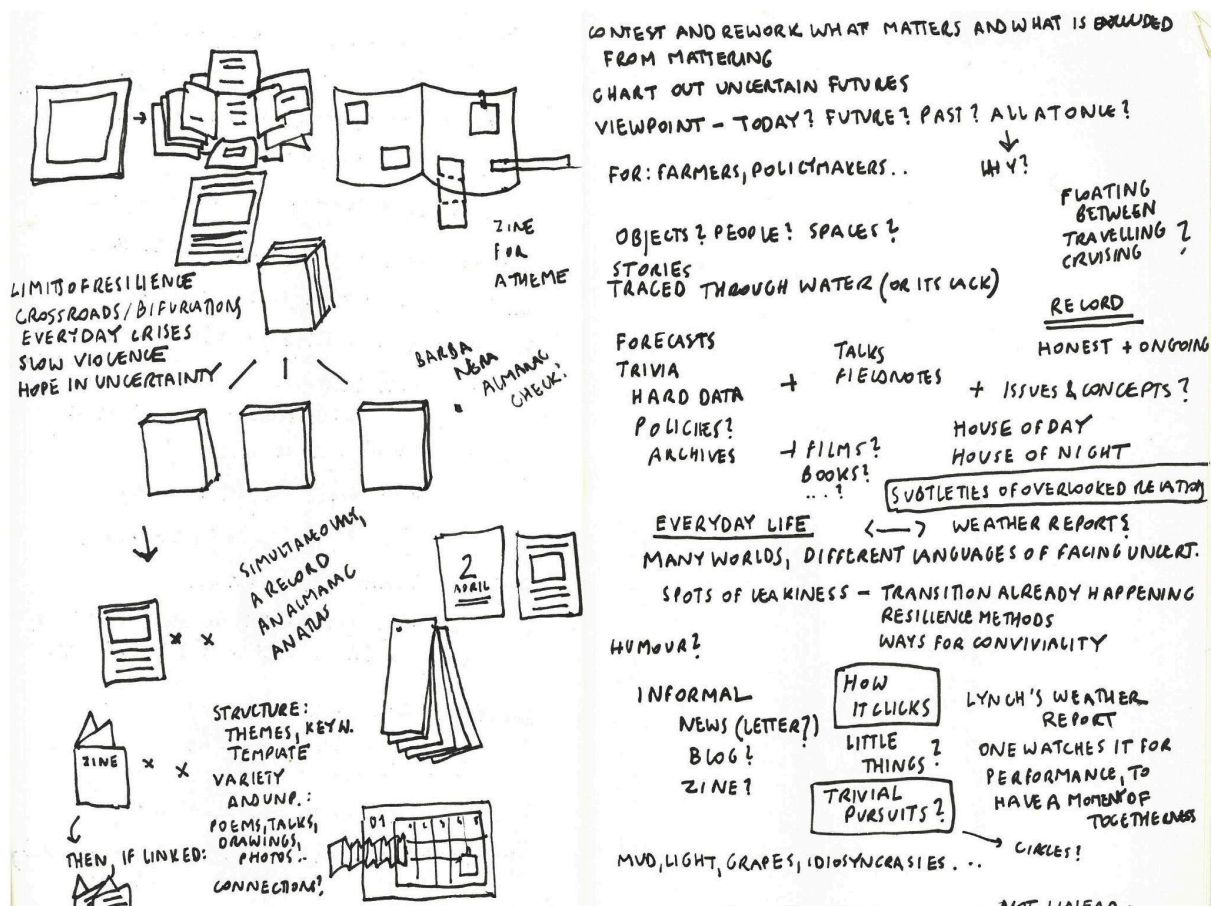 ZINE
FOR
A THEME
LIMITS OF RESILIENCE
CROSSROADS/BIFURCATIONS
EVERYDAY CRISES
SLOW VIOLENCE
HOPE IN UNCERTAINTY
BARBA
NERA
ALMANAC
CHECK?
SIMULTANEOUSLY,
A RECORD
AN ALMANAC
AN ATLAS
2
APRIL
STRUCTURE:
THEMES, KEY N.
TEMPLATE
VARIETY
AND UNP.:
POEMS, TALKS,
DRAWINGS,
PHOTOS..
CONNECTIONS?
ZINE
THEN, IF LINKED:
01
CONTEST AND REWORK WHAT MATTERS AND WHAT IS EXCLUDED
FROM MATTERING
CHART OUT UNCERTAIN FUTURES
VIEWPOINT - TODAY? FUTURE? PAST? ALL AT ONCE?
WHY?
FOR: FARMERS, POLICYMAKERS..
FLOATING
BETWEEN
TRAVELLING ?
CRUISING
OBJECTS? PEOPLE? SPACES?
STORIES
TRACED THROUGH WATER (OR ITS LACK)
RECORD
HONEST + ONGOING
FORECASTS
TRIVIA
HARD DATA
POLICIES?
ARCHIVES
+ TALKS
FIELDNOTES
+ FILMS?
BOOKS?
...?
+ ISSUES & CONCEPTS?
HOUSE OF DAY
HOUSE OF NIGHT
SUBTLETIES OF OVERLOOKED RELATION
EVERYDAY LIFE <—> WEATHER REPORT?
MANY WORLDS, DIFFERENT LANGUAGES OF FACING UNCERT.
SPOTS OF LEAKINESS - TRANSITION ALREADY HAPPENING
RESILIENCE METHODS
WAYS FOR CONVIVIALITY
HUMOUR?
INFORMAL
NEWS (LETTER?)
BLOG?
ZINE?
HOW
IT CLICKS
LITTLE
THINGS?
TRIVIAL
PURSUITS?
LYNCH'S WEATHER
REPORT
ONE WATCHES IT FOR
PERFORMANCE, TO
HAVE A MOMENT OF
TOGETHERNESS
CIRCLES?
MUD, LIGHT, GRAPES, IDIOSYNCRASIES...